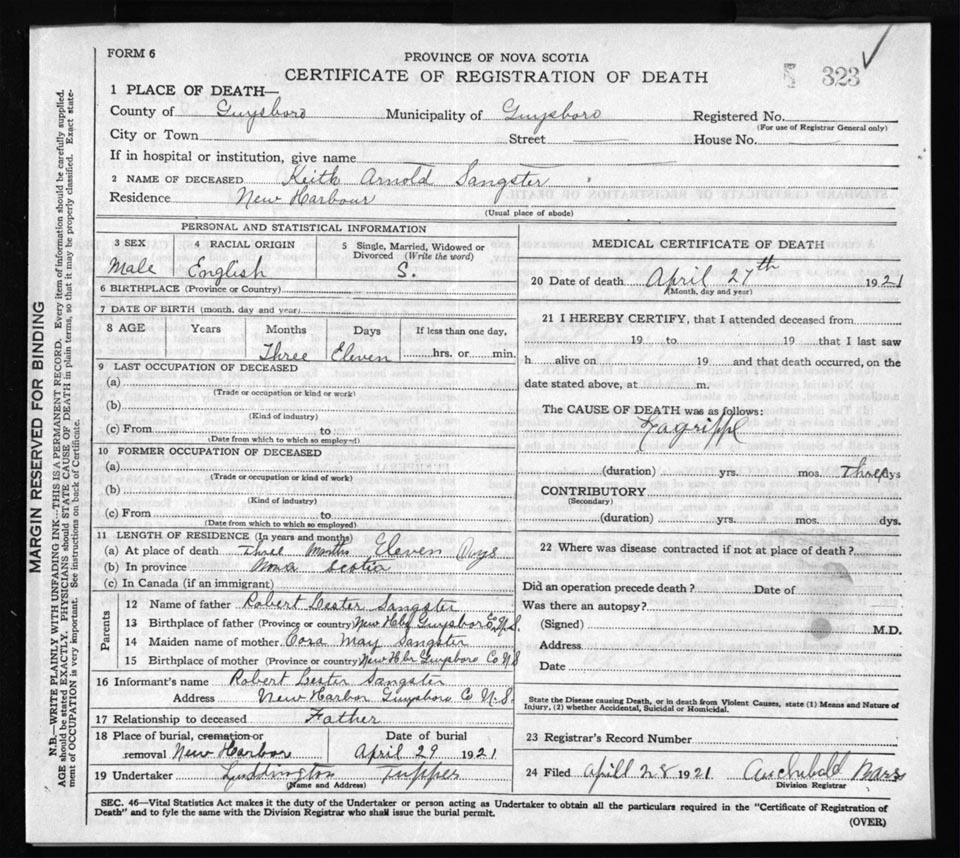 FORM 6
PROVINCE OF NOVA SCOTIA
323
CERTIFICATE OF REGISTRATION OF DEATH
1 PLACE OF DEATH—
County of Guysboro Municipality of Guysboro Registered No.
(For use of Registrar General only)
City or Town Street House No.
If in hospital or institution, give name
2 NAME OF DECEASED Keith Arnold Sangster
Residence New Harbour
(Usual place of abode)
PERSONAL AND STATISTICAL INFORMATION
3 SEX 4 RACIAL ORIGIN 5 Single, Married, Widowed or Divorced (Write the word)
Male English S.
6 BIRTHPLACE (Province or Country)
7 DATE OF BIRTH (month, day and year)
8 AGE Years Months Days If less than one day,
Three Eleven hrs. or min.
9 LAST OCCUPATION OF DECEASED
(a)
(Trade or occupation or kind or work)
(b)
(Kind of industry)
(c) From to
(Date from which to which so employed)
10 FORMER OCCUPATION OF DECEASED
(a)
(Trade or occupation or kind of work)
(b)
(Kind of industry)
(c) From to
(Date from which to which so employed)
11 LENGTH OF RESIDENCE (In years and months)
(a) At place of death Three Months Eleven Days
(b) In province Nova Scotia
(c) In Canada (if an immigrant)
Parents
12 Name of father Robert Lester Sangster
13 Birthplace of father (Province or country) New Hbr Guysboro Co N.S.
14 Maiden name of mother Cora May Sangster
15 Birthplace of mother (Province or country) New Hbr Guysboro Co N S
16 Informant's name Robert Lester Sangster
Address New Harbor Guysboro Co N.S.
17 Relationship to deceased Father
18 Place of burial, cremation or Date of burial
removal New Harbor April 29 1921
19 Undertaker Luddington Tupper
(Name and Address)
MEDICAL CERTIFICATE OF DEATH
20 Date of death April 27th 1921
(Month, day and year)
21 I HEREBY CERTIFY, that I attended deceased from
19 to 19 that I last saw
h alive on 19 and that death occurred, on the
date stated above, at m.
The CAUSE OF DEATH was as follows:
Lagrippe
(duration) yrs. mos. Three dys
CONTRIBUTORY
(Secondary)
(duration) yrs. mos. dys.
22 Where was disease contracted if not at place of death?
Did an operation precede death? Date of
Was there an autopsy?
(Signed) M.D.
Address
Date
State the Disease causing Death, or in death from Violent Causes, state (1) Means and Nature of
Injury, (2) whether Accidental, Suicidal or Homicidal.
23 Registrar's Record Number
24 Filed Aprill 28 1921 Archibald
Division Registrar
SEC. 46—Vital Statistics Act makes it the duty of the Undertaker or person acting as Undertaker to obtain all the particulars required in the "Certificate of Registration of
Death" and to fyle the same with the Division Registrar who shall issue the burial permit.
(OVER)
MARGIN RESERVED FOR BINDING
N.B.—WRITE PLAINLY WITH UNFADING INK—THIS IS A PERMANENT RECORD. Every item of information should be carefully supplied.
AGE should be stated EXACTLY. PHYSICIANS should STATE CAUSE OF DEATH in plain terms, so that it may be properly classified. Exact state-
ment of OCCUPATION is very important. See instructions on back of Certificate.